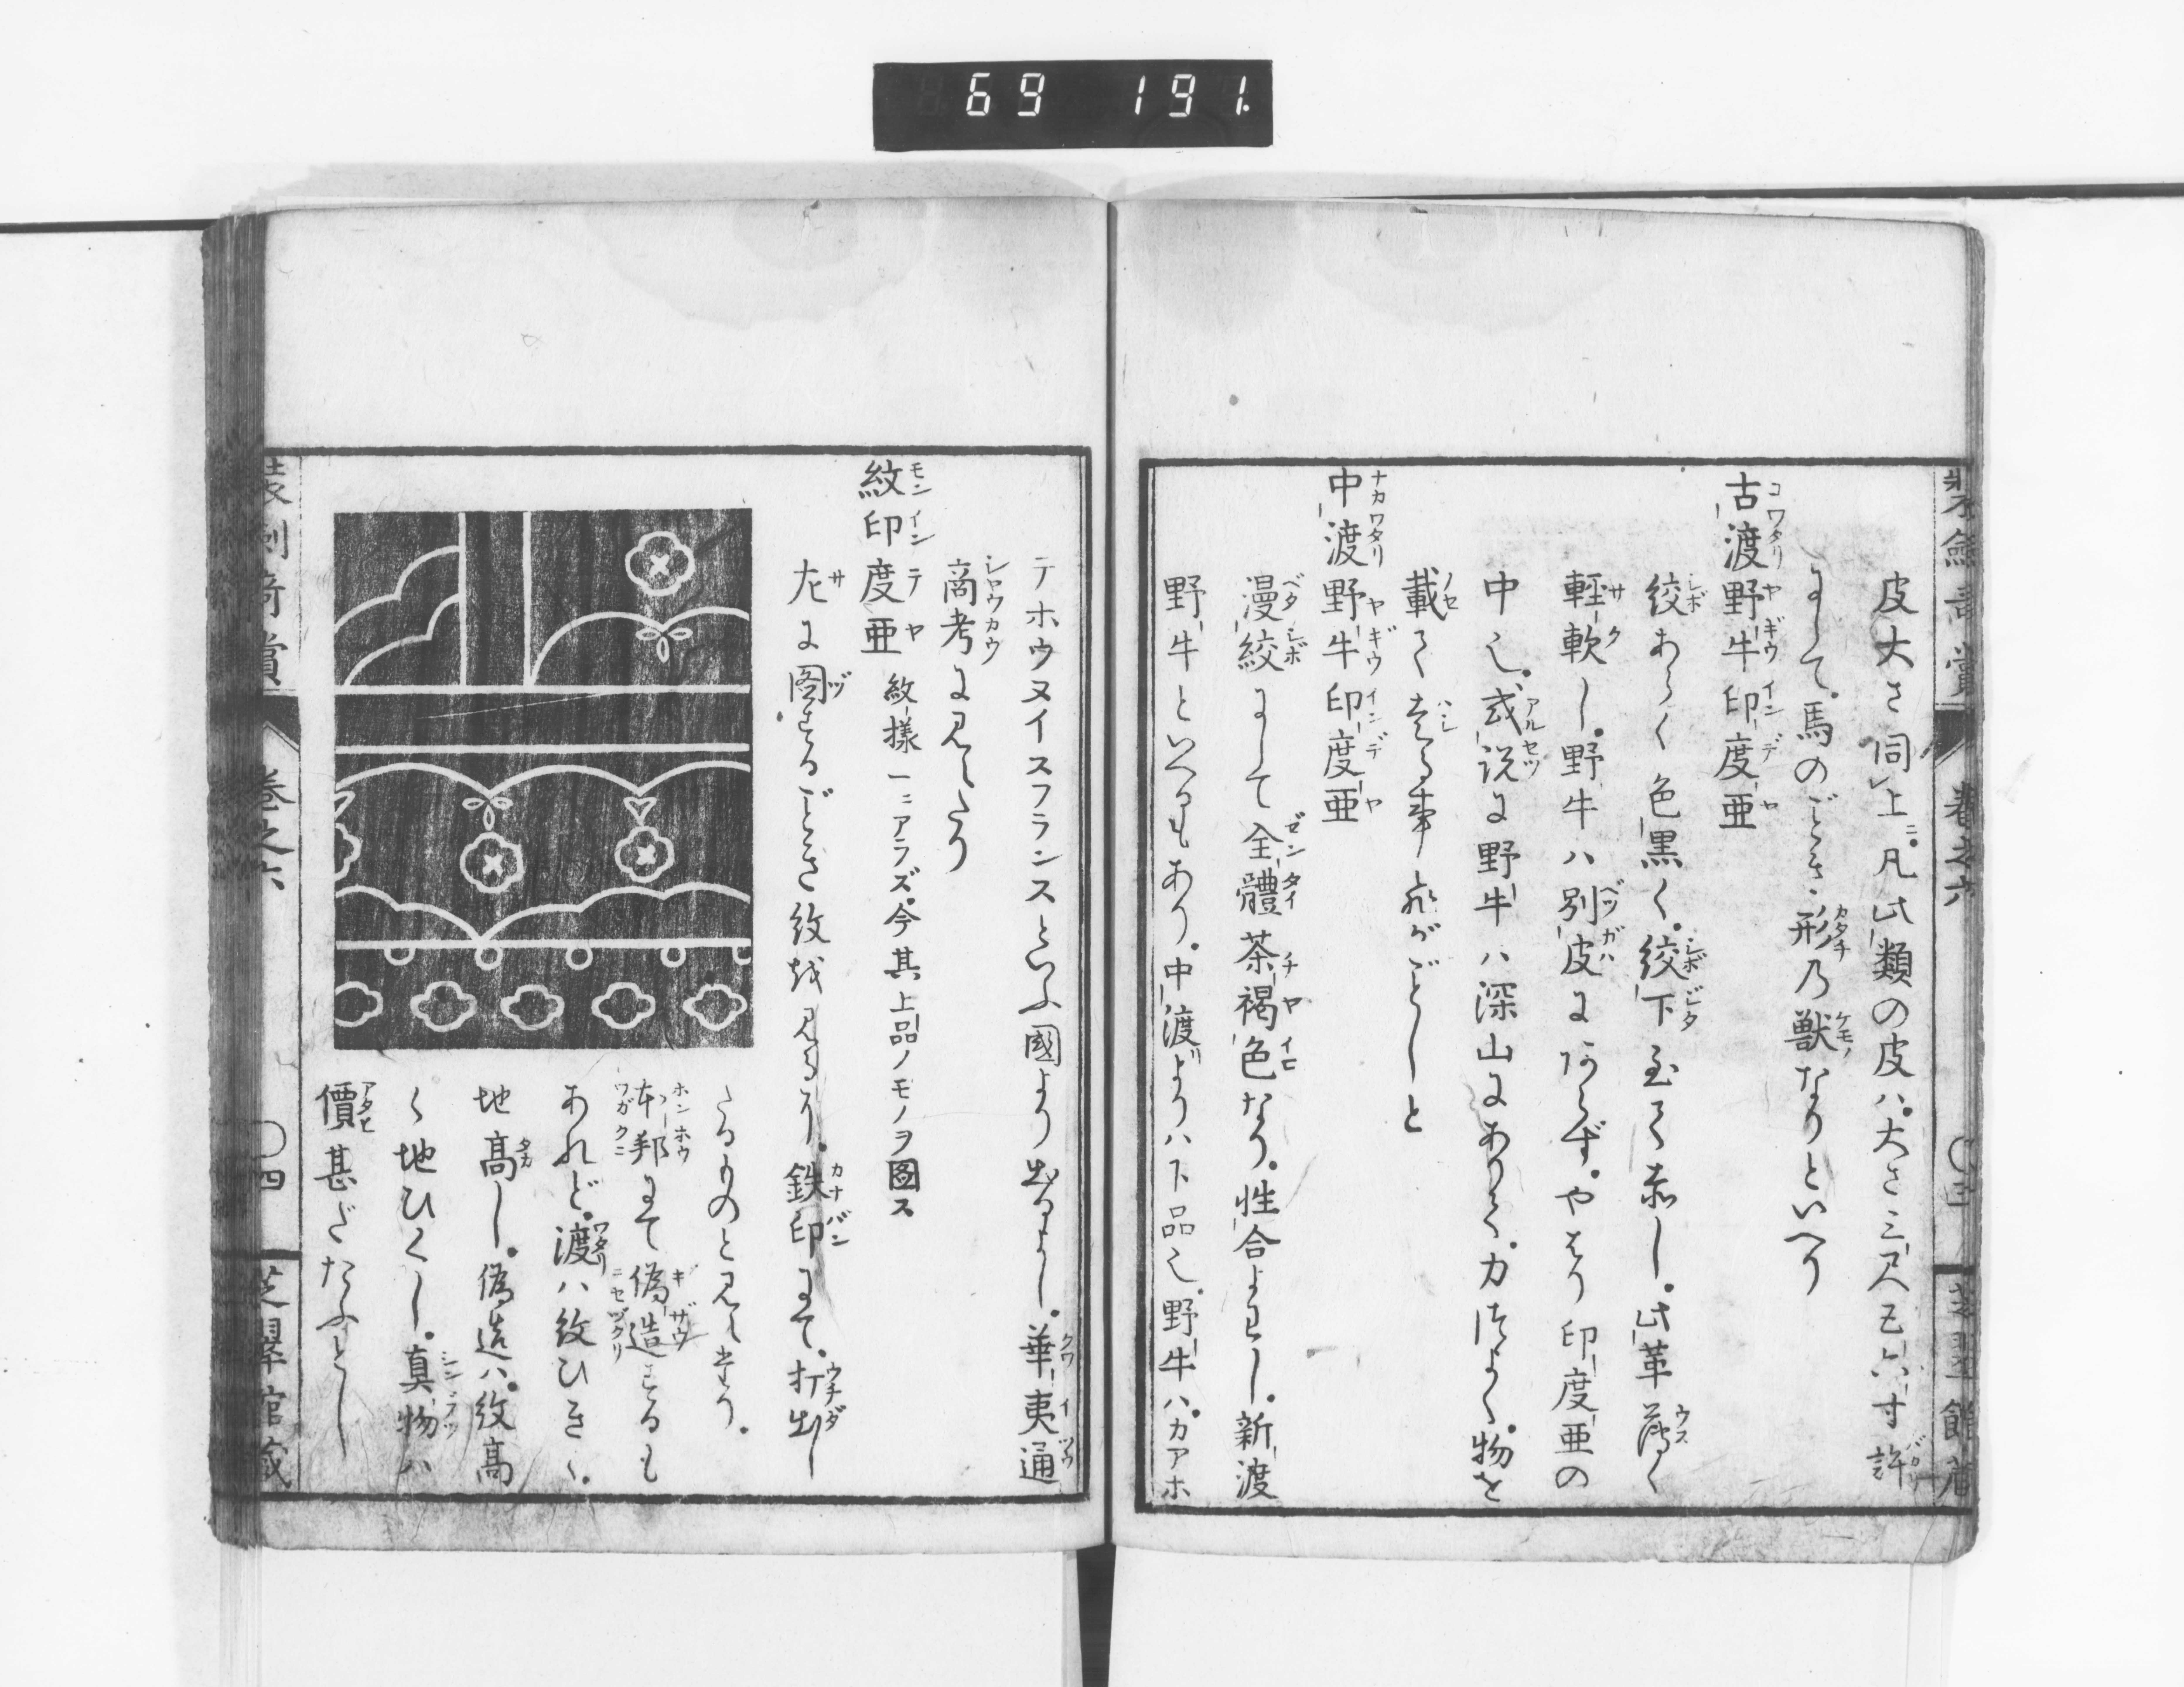 69 191.
皮大さ同上ニ。凡此類の皮ハ。大さ三尺五六寸許
にして。馬のごとき形乃獣なりといへり
古渡野牛印度亜
絞あらく色黒く。絞下至て赤し。此革薄く
軽軟し。野牛ハ別皮にあらず。やはり印度亜の
中也。或説に野牛ハ深山にありて。力つよく。物を
載て走る事飛がごとしと
中渡野牛印度亜
漫絞にして全體茶褐色なり。性合よろし。新渡
野牛といへるもあり。中渡よりハ下品也。野牛ハ。カアホ
テホウヌイスフランスといふ國より出るよし。華夷通
商考に見えたり
紋印度亜 紋様一ニアラズ。今其上品ノモノヲ図ス
左に図するごとき紋を見るなり。鉄印にて。打出し
たるものと見えたり。
本邦にて偽造するも
あれど。渡ハ紋ひきく。
地高し。偽造ハ。紋高
く地ひくし。真物ハ
價甚だたふとし
装剣奇賞 巻之六 〇四 芝翠館蔵